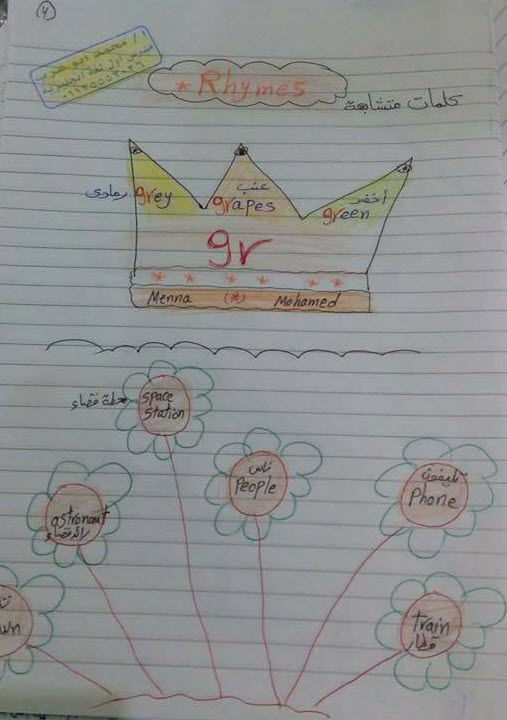 (٤)
أ/ محمد ابو
* Rhymes
كلمات متشابهة
رمادى grey
عنب
grapes
أخضر
green
gr
Menna (*) Mohamed
محطة فضاء space
station
ناس
People
تليفون
Phone
astronaut
رائد فضاء
train
قطار